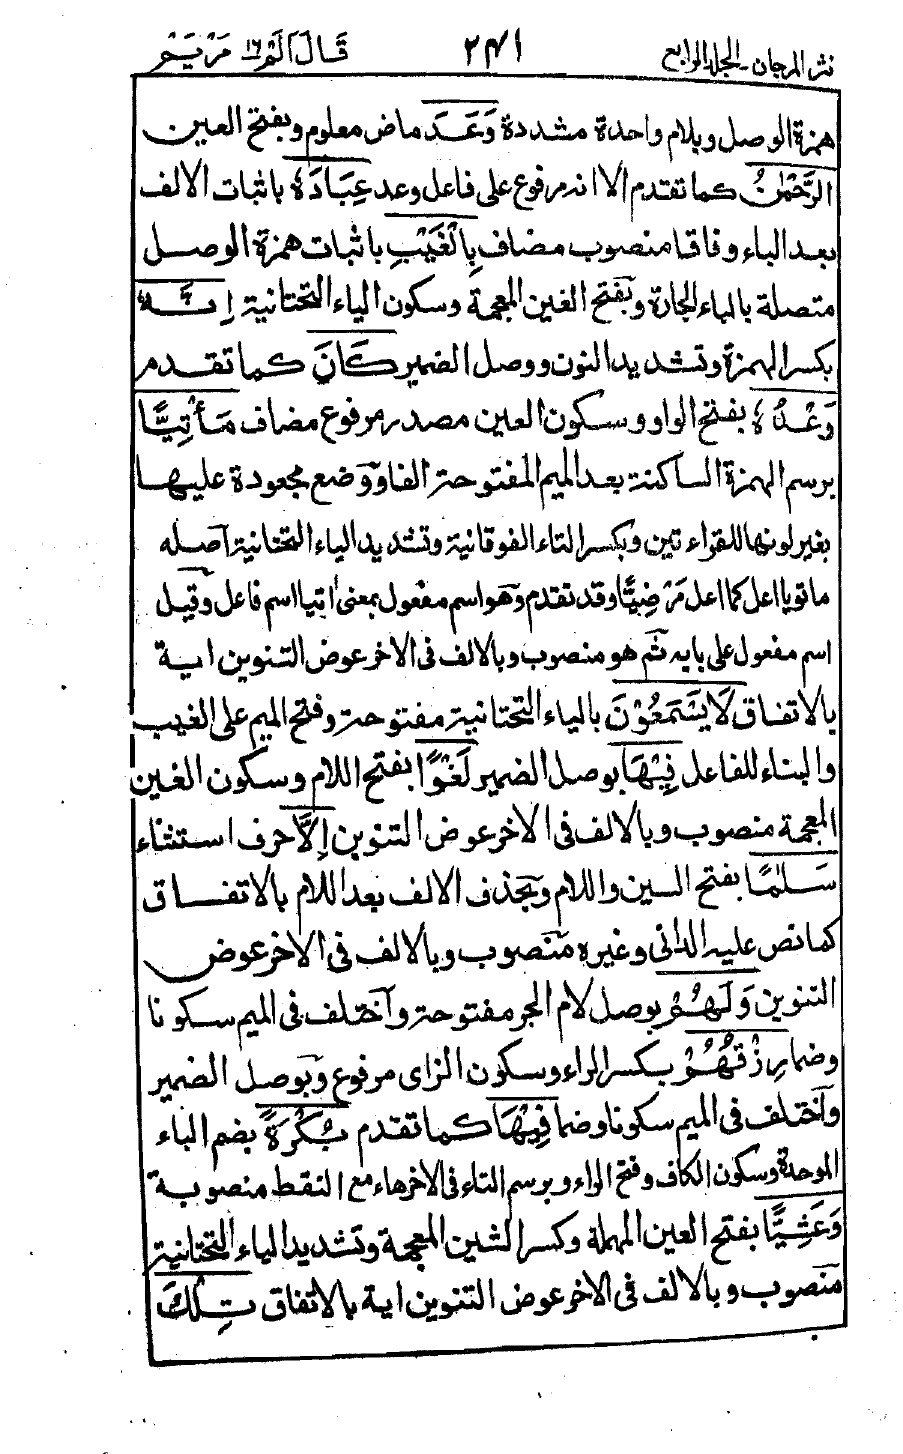 نثر المرجان - الجلد الرابع ٢٤١ قَالَ اَلَمْ ١٦ مَرْيَمْ
همزة الوصل وبلام واحدة مشددة وَعَدَ ماض معلوم وبفتح العين
الرَّحْمٰنُ كما تقدم الا انه مرفوع على فاعل وعد عِبَادَهٗ باثبات الالف
بعد الباء وفاقا منصوب مضاف بِالْغَيْبِ باثبات همزة الوصل
متصلة بالباء الجارة وبفتح الغين المعجمة وسكون الياء التحتانية اِنَّهٗ
بكسر الهمزة وتشديد النون ووصل الضمير كَانَ كما تقدم
وَعْدُهٗ بفتح الواو وسكون العين مصدر مرفوع مضاف مَأْتِيًّا
برسم الهمزة الساكنة بعد الميم المفتوحة الفا ووضع مجعودة عليها
بغير لونها للقراءتين وبكسر التاء الفوقانية وتشديد الياء التحتانية اصله
ماتويا اعل كما اعل مَرْضِيًّا وقد تقدم وهو اسم مفعول بمعنى اتيا اسم فاعل وقيل
اسم مفعول على بابه ثم هو منصوب وبالالف فى الاخر عوض التنوين اية
بالاتفاق لَا يَسْمَعُوْنَ بالياء التحتانية مفتوحة وفتح الميم على الغيب
والبناء للفاعل فِيْهَا بوصل الضمير لَغْوًا بفتح اللام وسكون الغين
المعجمة منصوب وبالالف فى الاخر عوض التنوين اِلَّا حرف استثناء
سَلٰمًا بفتح السين واللام وبحذف الالف بعد اللام بالاتفاق
كما نص عليه الدانى وغيره منصوب وبالالف فى الاخر عوض
التنوين وَلَهُمْ بوصل لام الجر مفتوحة واختلف فى الميم سكونا
وضما رِزْقُهُمْ بكسر الراء وسكون الزاى مرفوع وبوصل الضمير
واختلف فى الميم سكونا وضما فِيْهَا كما تقدم بُكْرَةً بضم الباء
الموحدة وسكون الكاف وفتح الراء وبرسم التاء فى الاخر هاء مع النقط منصوبة
وَعَشِيًّا بفتح العين المهملة وكسر الشين المعجمة وتشديد الياء التحتانية
منصوب وبالالف فى الاخر عوض التنوين اية بالاتفاق تِلْكَ